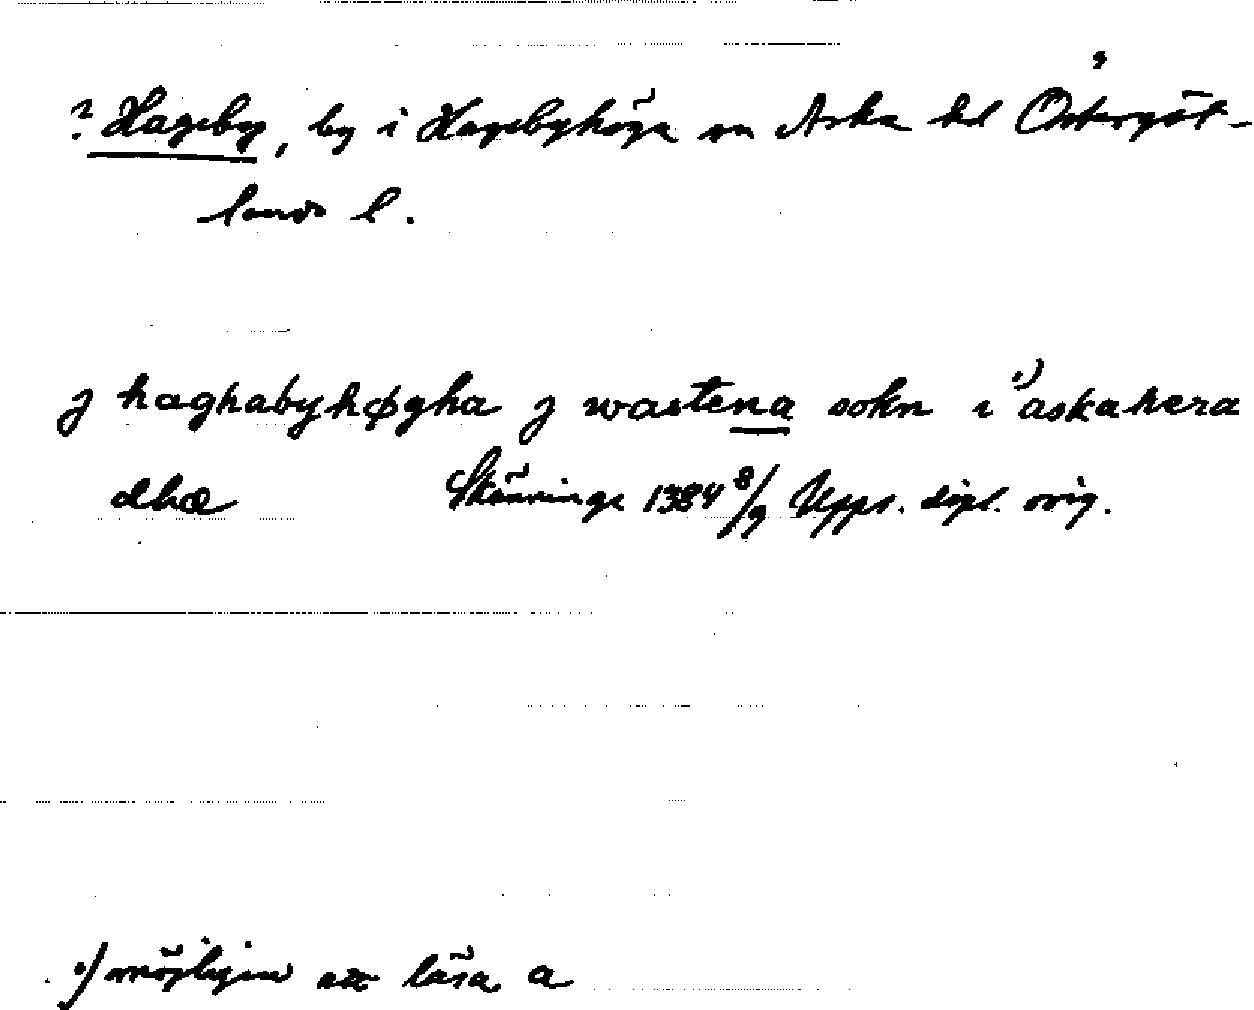 ? Hageby, by i Hagebyhöga sn Aska hd Östergöt-
lands l.
j haghabyhøgha j wastena sokn i ¹) askahera
dhæ Skänninge 1384 8/9 Upps. dipl. orig.
¹) möjligen att läsa a